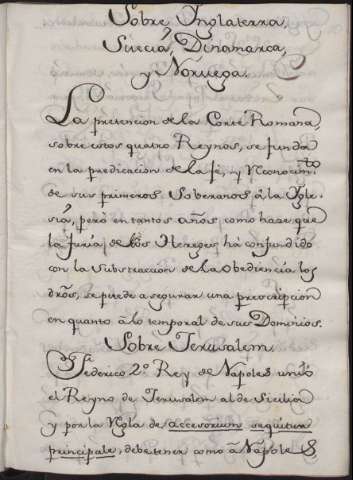 Sobre Inglaterra
Suecia, Dinamarca,
y Noruega.
La pretencion de la Corte Romana,
sobre estos quatro Reynos, se funda
en la predicacion de la fé, y reconocim.to
de sus primeros Soberanos à la Igle-
sia, però en tantos años, como hase que
la furia de los Hereges, ha confundido
con la substraccion de la obediencia los
dros, se puede asegurar una preocripcion
en quanto à lo temporal de sus Dominios.
Sobre Jerusalem
Federico 2.º Rey de Napoles unió
el Reyno de Jerusalem al de Sicilia
y por la Regla de accesorium sequitur
principale, debe tener como à Napoles